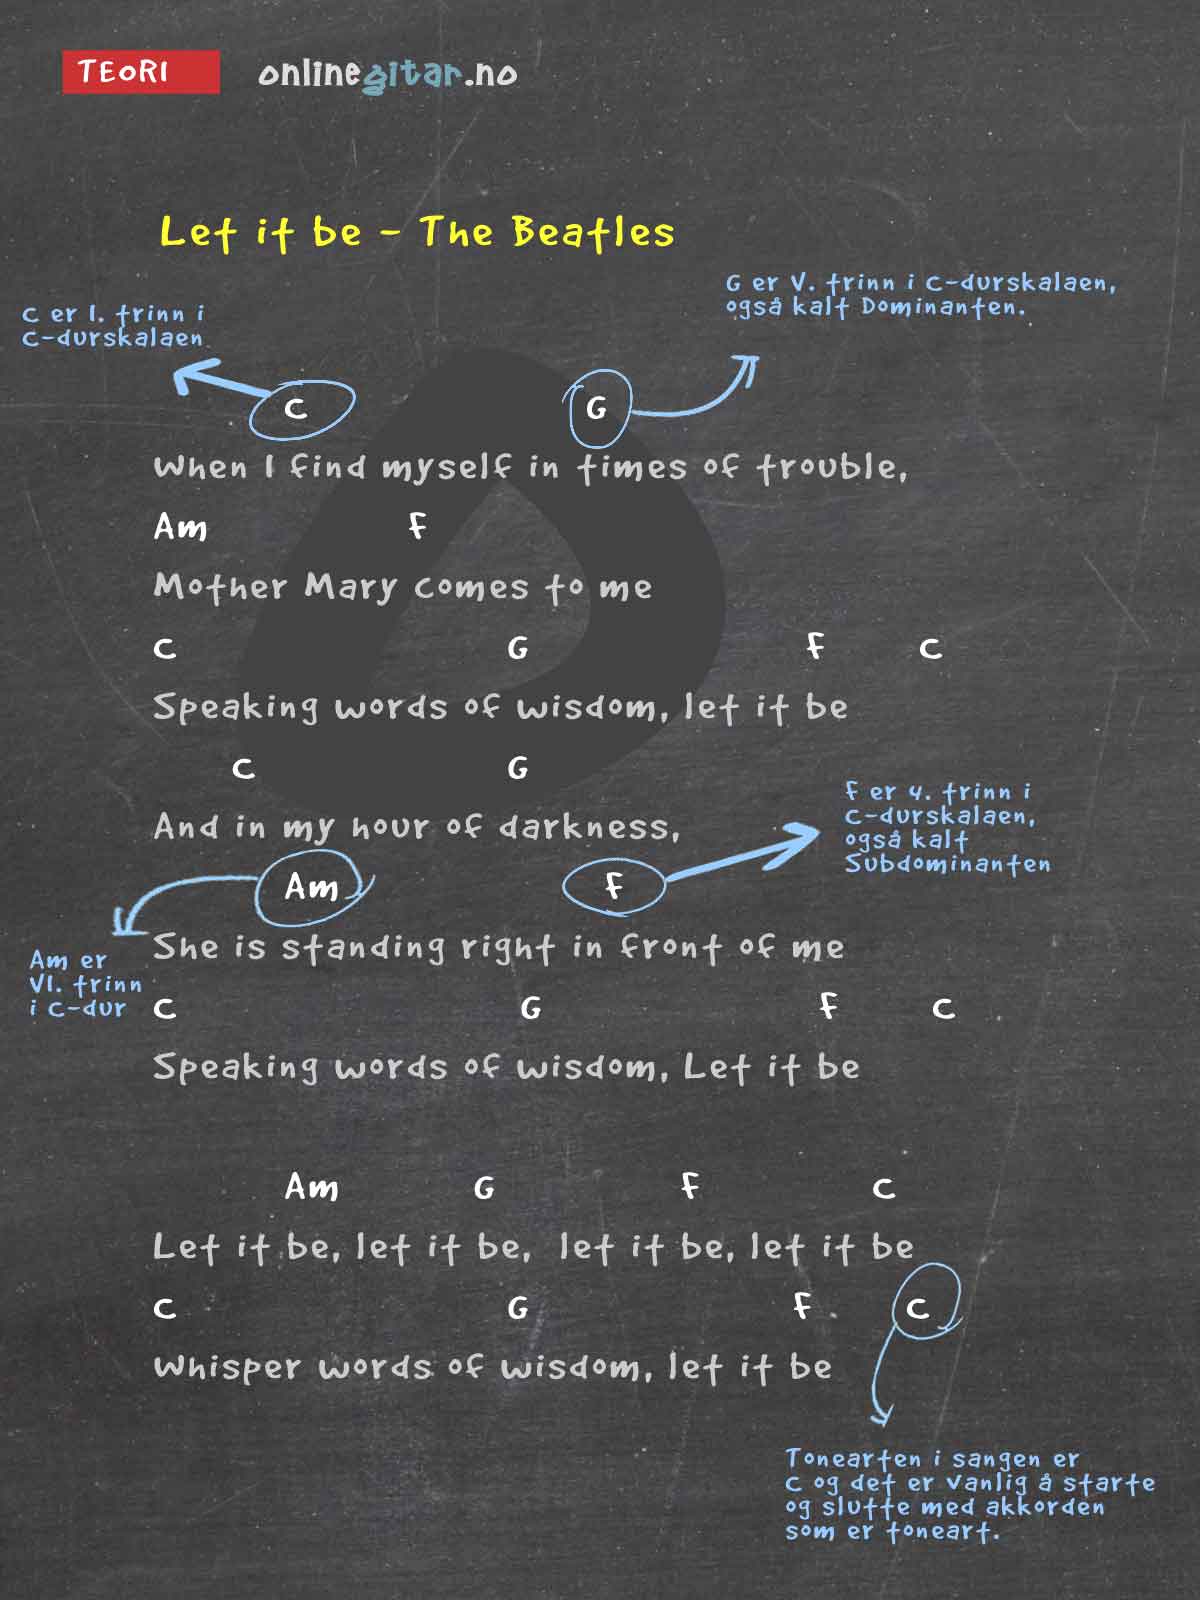 TEORI
onlinegitar.no
Let it be - The Beatles
G er V. trinn i C-durskalaen,
også kalt Dominanten.
C er 1. trinn i
C-durskalaen
C G
When I find myself in times of trouble,
Am F
Mother Mary comes to me
C G F C
Speaking words of wisdom, let it be
C G
And in my hour of darkness,
F er 4. trinn i
C-durskalaen,
også kalt
Subdominanten
Am F
She is standing right in front of me
Am er
VI. trinn
i C-dur
C G F C
Speaking words of wisdom, Let it be
Am G F C
Let it be, let it be, let it be, let it be
C G F C
Whisper words of wisdom, let it be
Tonearten i sangen er
C og det er vanlig å starte
og slutte med akkorden
som er toneart.